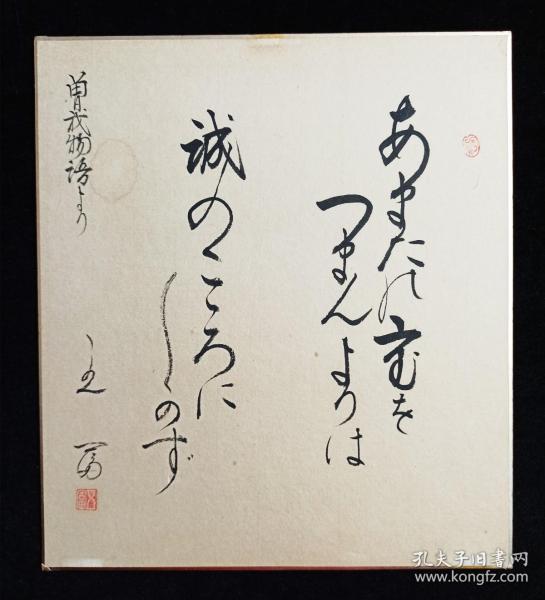 あまたの宝を
つまんよりは
誠のこころに
しかず
曽我物語より
孔夫子旧书网
www.kongfz.com